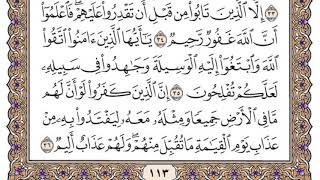 ٣٣ إِلَّا ٱلَّذِينَ تَابُوا۟ مِن قَبْلِ أَن تَقْدِرُوا۟ عَلَيْهِمْ ۖ فَٱعْلَمُوٓا۟
أَنَّ ٱللَّهَ غَفُورٌ رَّحِيمٌ ٣٤ يَٰٓأَيُّهَا ٱلَّذِينَ ءَامَنُوا۟ ٱتَّقُوا۟
ٱللَّهَ وَٱبْتَغُوٓا۟ إِلَيْهِ ٱلْوَسِيلَةَ وَجَٰهِدُوا۟ فِى سَبِيلِهِۦ
لَعَلَّكُمْ تُفْلِحُونَ ٣٥ إِنَّ ٱلَّذِينَ كَفَرُوا۟ لَوْ أَنَّ لَهُم
مَّا فِى ٱلْأَرْضِ جَمِيعًا وَمِثْلَهُۥ مَعَهُۥ لِيَفْتَدُوا۟ بِهِۦ مِنْ
عَذَابِ يَوْمِ ٱلْقِيَٰمَةِ مَا تُقُبِّلَ مِنْهُمْ ۖ وَلَهُمْ عَذَابٌ أَلِيمٌ ٣٦
١١٣